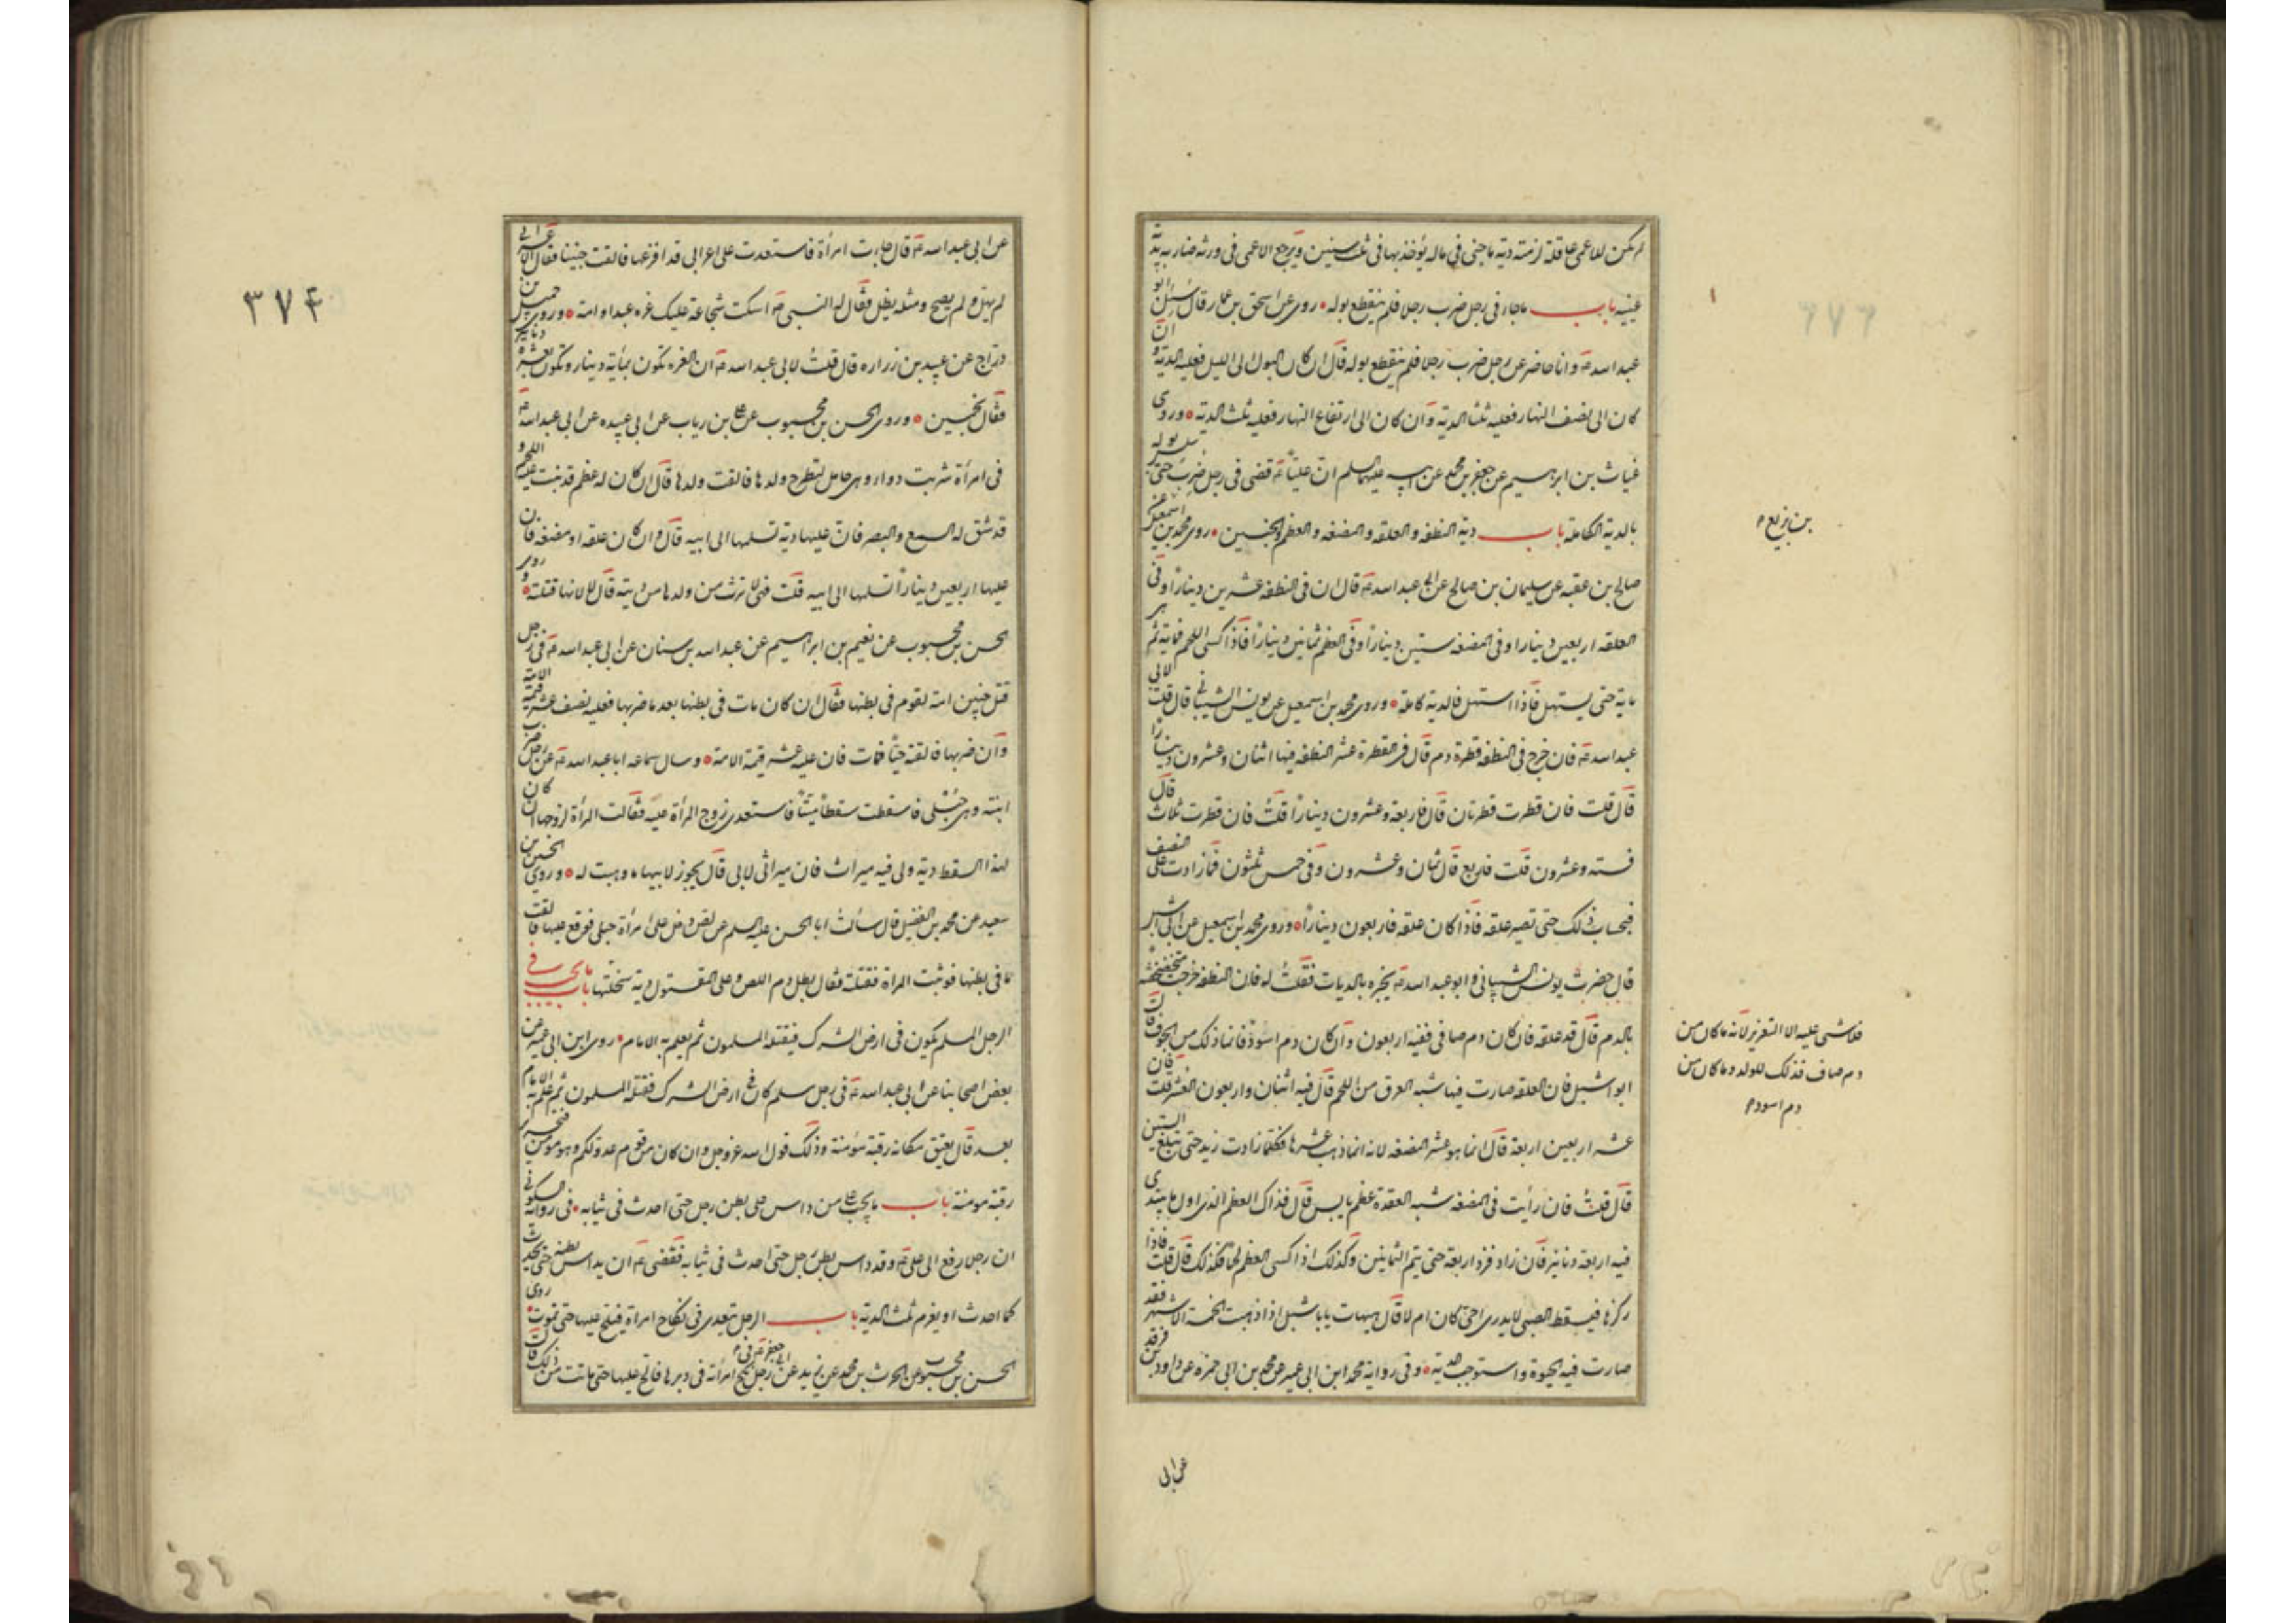 لم يكن للاعمى عاقلة لزمته دية ما جنى في ماله يؤخذ بها في ثلث سنين ويرجع الاعمى في ورثة ضاربه بدية
عينيه باب ما جاء في رجل ضرب رجلا فلم ينقطع بوله روى عن اسحق بن عمار قال سئل ابو
عبد الله ع وانا حاضر عن رجل ضرب رجلا فلم ينقطع بوله قال ان كان البول الى الليل فعليه الدية وان
كان الى نصف النهار فعليه ثلثا الدية وان كان الى ارتفاع النهار فعليه ثلث الدية وروى
غياث بن ابرهيم عن جعفر بن محمد عن ابيه عليهما السلم ان عليا ع قضى في رجل ضرب حتى سلس بوله
بالدية الكاملة باب دية النطفه والعلقه والمضغه والعظم والجنين روى محمد بن اسمعيل عن
بن بزيع
صالح بن عقبه عن سليمان بن صالح عن ابي عبد الله ع قال ان في النطفه عشرين دينارا وفي
العلقه اربعين دينارا وفي المضغه ستين دينارا وفي العظم ثمانين دينارا فاذا كسى اللحم فمايه ثم هي
مايه حتى يستهل فاذا استهل فالدية كاملة وروى محمد بن اسمعيل عن يونس الشيباني قال قلت لابي
عبد الله ع فان خرج في النطفه قطرة دم قال في القطرة عشر النطفه فيها اثنان وعشرون دينارا
قال قلت فان قطرت قطرتان قال فاربعة وعشرون دينارا قلت فان قطرت ثلاث قال
فسته وعشرون قلت فاربع قال ثمان وعشرون وفي خمس ثلثون فما زادت على النصف
فبحساب ذلك حتى تصير علقه فاذا كان علقه فاربعون دينارا وروى محمد بن اسمعيل عن ابي شبل
قال حضرت يونس الشيباني وابو عبد الله ع يخبره بالديات فقلت له فان النطفه خرجت متخضخضة
بالدم قال قد علقه فان كان دم صافى ففيه اربعون وان كان دم اسود فانما ذلك من الجوف قال
فلا شى عليه الا التعزير لانه ما كان من
دم صاف فذلك للولد وما كان من
دم اسود
ابو شبل فان العلقه صارت فيها شبه العرق من اللحم قال فيه اثنان واربعون العشر قلت فان
عشر اربعين اربعة قال انما هو عشر المضغه لانه انما ذهب عشرها فكلما زادت زيد حتى تبلغ الستين
قال قلت فان رأيت في المضغه شبه العقدة عظم يابس قال فذاك العظم الذي اول ما يبتدى
فيه اربعة دنانير فان زاد فزد اربعة حتى يتم الثمانين وكذلك اذا كسى العظم لحما فكذلك قال قلت فاذا
ركزها فيسقط الصبى لا يدرى احى كان ام لا قال هيهات يا با شبل اذا ذهبت الخمسة الاشهر فقد
صارت فيه الحيوة واستوجب الدية وفي رواية محمد ابن ابى عمير عن محمد بن ابى حمزه عن داود بن فرقد
عن ابى
٣٧٤
عن ابى عبد الله ع قال جاءت امرأة فاستعدت على اعرابى قد افزعها فالقت جنينا فقال الاعرابى
لم يهل ولم يصح ومثله يطل فقال له النبى ص اسكت شجاعة عليك غره عبد او امة وروى جميل بن
دراج عن عبيد بن زراره قال قلت لابى عبد الله ع ان الغره تكون بمأية دينار وتكون بعشرة دنانير
فقال بخمسين وروى الحسن بن محبوب عن على بن رياب عن ابى عبيده عن ابى عبد الله ع
فى امرأة شربت دواء وهى حامل لتطرح ولدها فالقت ولدها قال ان كان له عظم قد نبت عليه اللحم و
قد شق له السمع والبصر فان عليها دية تسلمها الى ابيه قال وان كان علقه او مضغه فان
عليها اربعين دينارا تسلمها الى ابيه قلت فهى لا ترث من ولدها من ديته قال لا لانها قتلته وروى
الحسن بن محبوب عن نعيم بن ابرهيم عن عبد الله بن سنان عن ابى عبد الله ع فى رجل
قتل جنين امة لقوم فى بطنها فقال ان كان مات فى بطنها بعد ما ضربها فعليه نصف عشر قيمة الامة
وان ضربها فالقته حيا فمات فان عليه عشر قيمة الامة وسال سماعه ابا عبد الله ع عن رجل ضرب
ابنته وهى حبلى فاسقطت سقطا ميتا فاستعدى زوج المرأة عليه فقالت المرأة لزوجها ان كان
لهذا السقط دية ولى فيه ميراث فان ميراثى لابى قال يجوز لابيها ما وهبت له وروى الحسين بن
سعيد عن محمد بن الفضيل قال سألت ابا الحسن عليه السلم عن لص دخل على امرأة حبلى فوقع عليها فالقت
ما فى بطنها فوثبت المراة فقتلته فقال يطل دم اللص وعلى المقتول دية سخلتها باب ما يجب فى
الرجل المسلم يكون فى ارض الشرك فيقتله المسلمون ثم يعلم به الامام روى ابن ابى عمير عن
بعض اصحابنا عن ابى عبد الله ع فى رجل مسلم كان فى ارض الشرك فقتله المسلمون ثم علم به الامام
بعد قال يعتق مكانه رقبة مؤمنة وذلك قول الله عز وجل وان كان من قوم عدو لكم وهو مومن فتحرير
رقبة مومنة باب ما يجب على من داس على بطن رجل حتى احدث فى ثيابه فى رواية السكونى
ان رجلا رفع الى على ع وقد داس بطن رجل حتى احدث فى ثيابه فقضى ع ان يداس بطنه حتى يحدث
كما احدث او يغرم ثلث الدية باب الرجل يتعدى فى نكاح امراة فيلح عليها حتى تموت روى
الحسن بن محبوب عن الحرث بن محمد عن زيد عن ابى جعفر ع فى رجل نكح امرأته فى دبرها فالح عليها حتى ماتت من ذلك قال